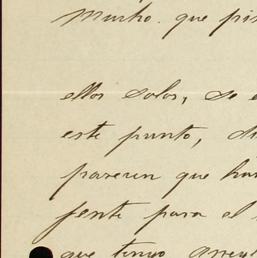 Mucho. que
ellos solos, se
este punto,
parecen que
gente para el
que tengo